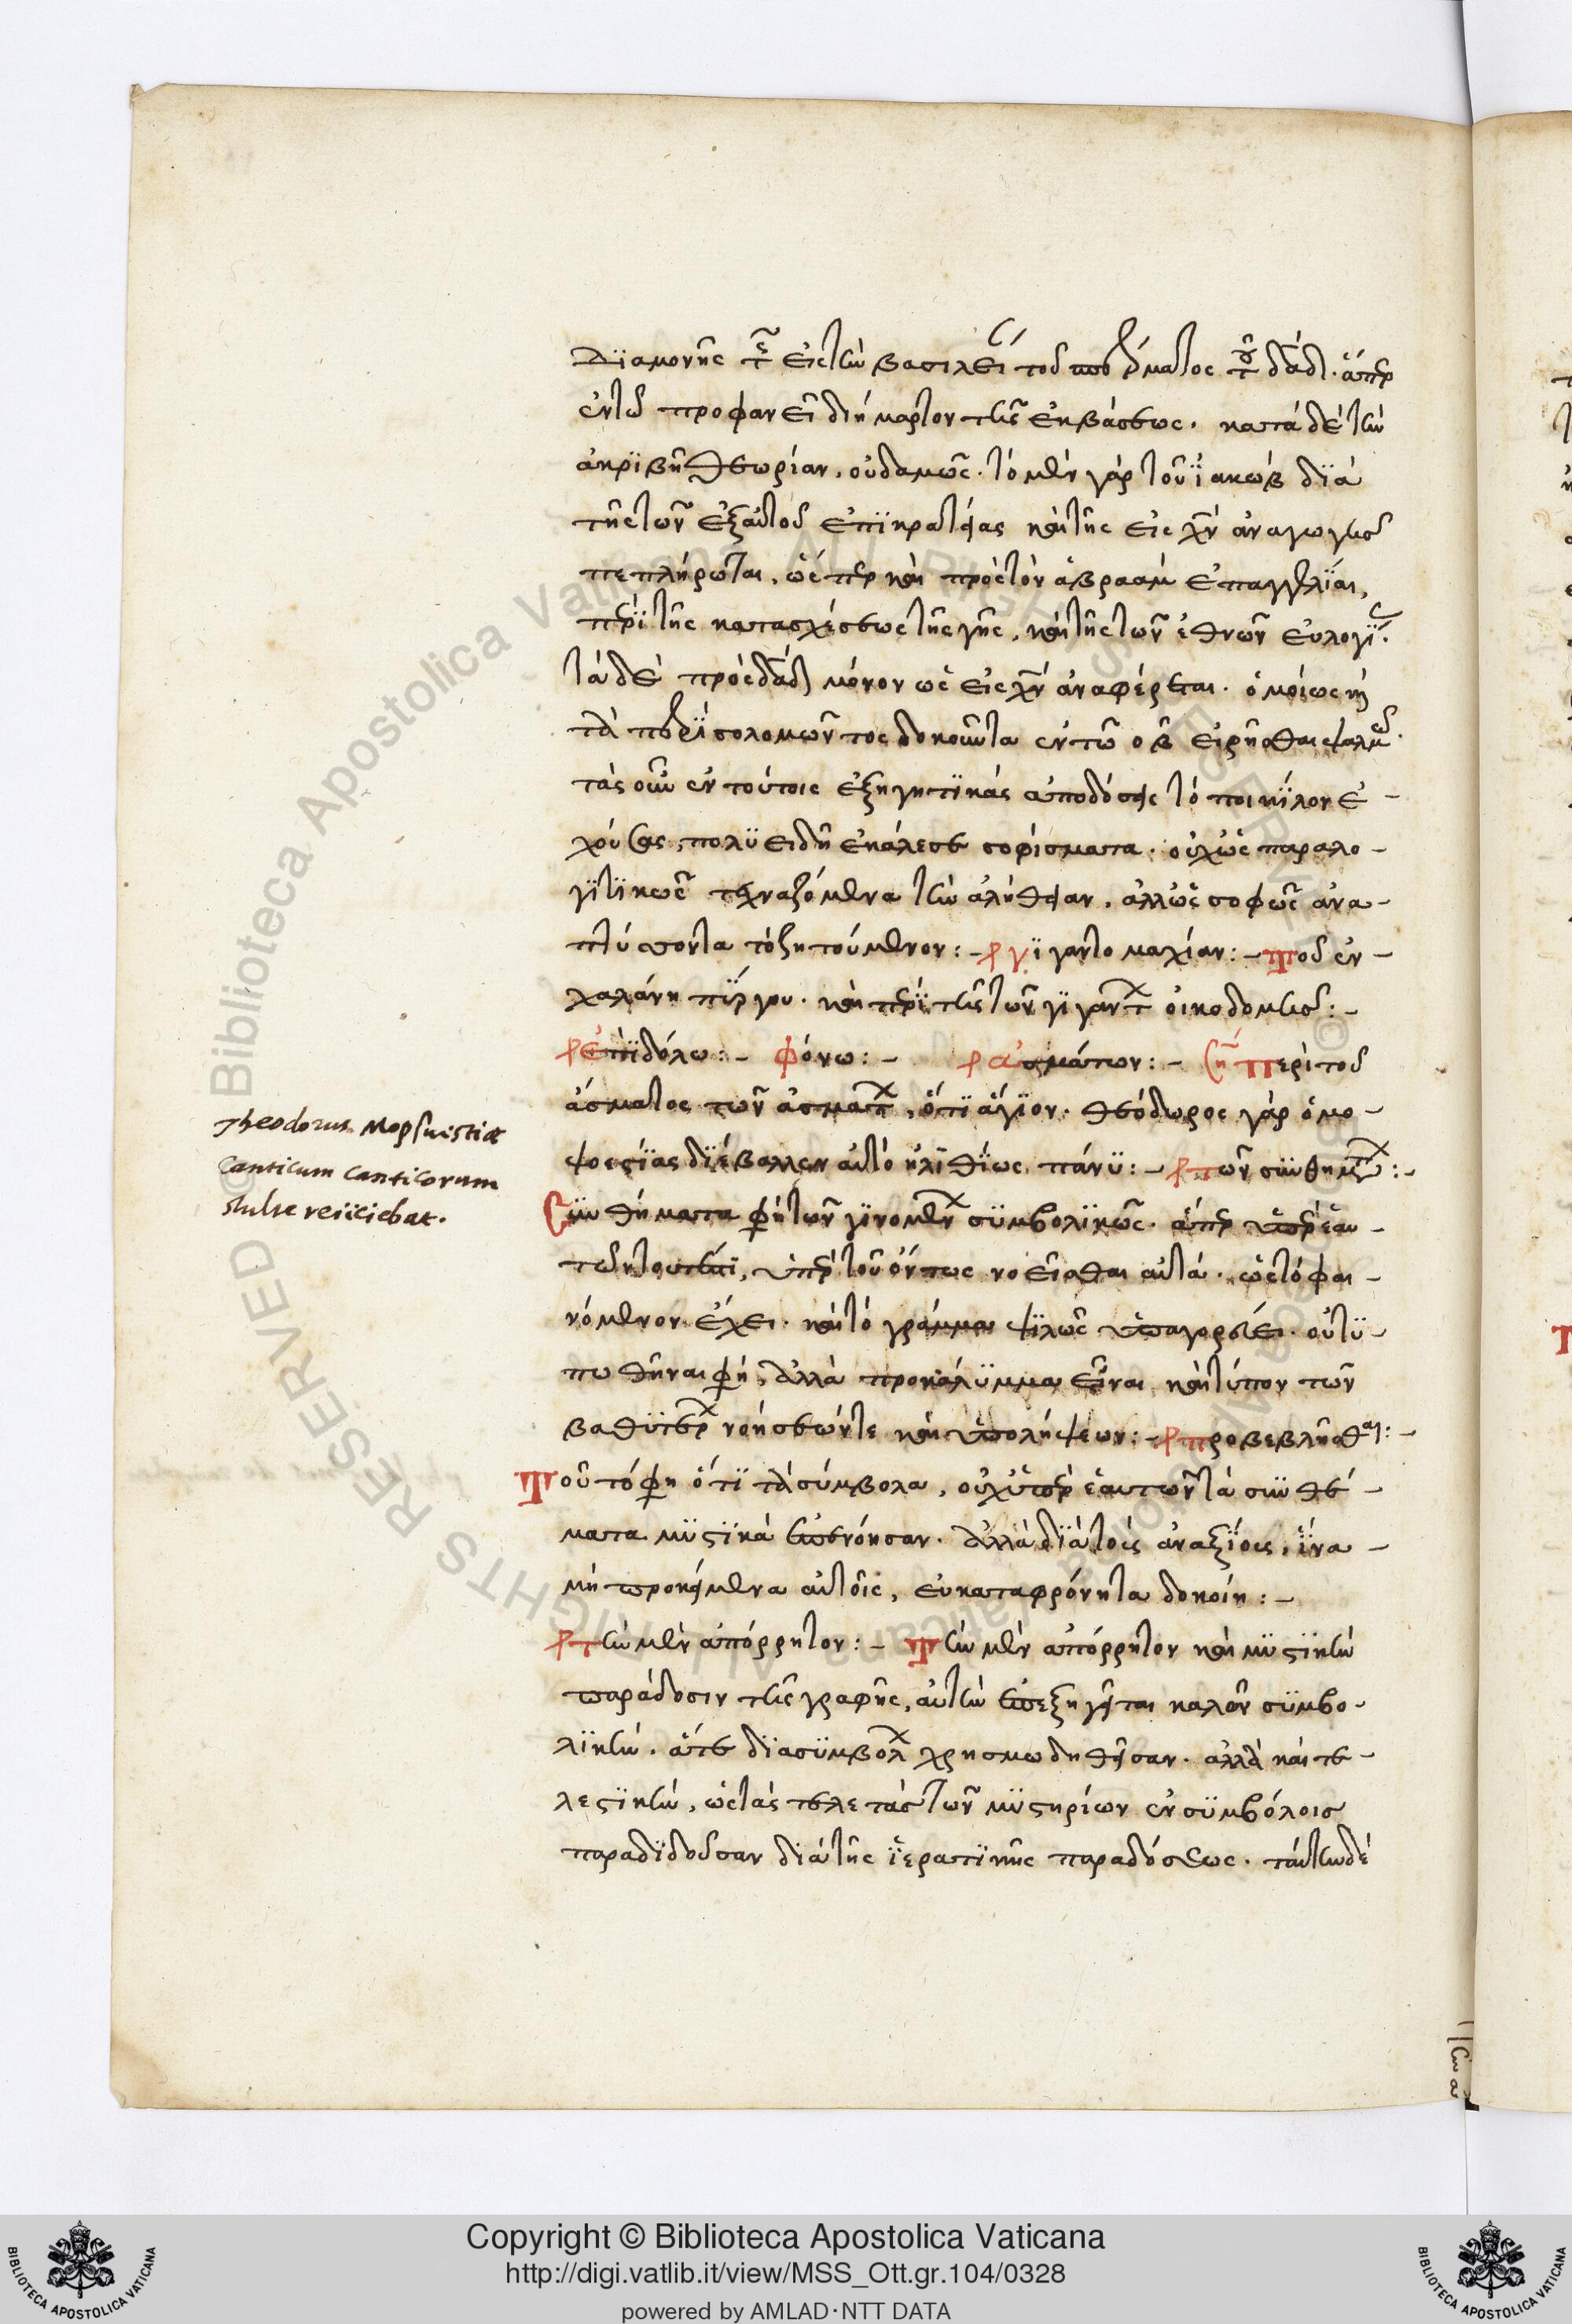 διαμονῆς τῆς εἰς τὴν βασιλείαν τοῦ σπέρματος τοῦ δαδ. ἅπερ
ἐν τῷ προφανεῖ διήμαρτον τῆς ἐκβάσεως. κατὰ δὲ τὴν
ἀκριβῆ θεωρίαν, οὐδαμῶς. τὸ μὲν γὰρ τοῦ ϊακὼβ δϊὰ
τῆς τῶν ἐξ αὐτοῦ ἐπϊκρατείας καὶ τῆς εἰς χν ἀναγωγῆς
πεπλήρωται, ὥσπερ καὶ πρὸς τὸν ἀβραὰμ ἐπαγγελίαι,
περὶ τῆς κατασχέσεως τῆς γῆς, καὶ τῆς τῶν ἐθνῶν εὐλογίας.
τὰ δὲ πρὸς δαδ μόνον ὡς εἰς χν ἀναφέρεται. ὁμοίως καὶ
τὰ περὶ σολομῶντος δοκοῦντα ἐν τῷ οβ εἰρῆσθαι ψαλμῷ.
τὰς οὖν ἐν τούτοις ἐξηγητϊκὰς ἀποδόσεις τὸ ποικίλον ἐ-
χούσας, πολϋειδῆ ἐκάλεσε σοφίσματα. οὐχ ὡς παραλο-
γϊστϊκῶς τεχναζόμενα τὴν ἀλήθειαν, ἀλλ' ὡς σοφῶς ἀνα-
πτύσσοντα τὸ ζητούμενον:- γϊγαντομαχίαν:- Τοῦ ἐν
χαλάνη πϋργου. καὶ περὶ τῆς τῶν γϊγάντων οἰκοδομῆς:-
ἐπὶ δόλω:- φόνω:- ἀσμάτων:- ση Περὶ τοῦ
ἄσματος τῶν ἀσμάτων, ὅτϊ ἅγϊον. θεόδωρος γὰρ ὁ μο-
ψοεστίας δϊέβαλλεν αὐτὸ ἠλϊθίως πάνϋ:- τῶν σϋνθημάτων:-
Σϋνθήματα φησὶ τῶν γϊνομένων σϋμβολϊκῶς. ἅπερ ὑπὲρ ἑαυ-
ὑπὲρ τοῦ ὄντως νοεῖσθαι αὐτά. ὡς τὸ φαι-
νόμενον ἔχει. καὶ τὸ γράμμα ψϊλῶς ὑπαγορεύει. οὐ τϋ-
πωθῆναι φησί, ἀλλὰ προκάλϋμμα εἶναι, καὶ τύπον τῶν
βαθϋτέρων νοήσεών τε καὶ ὑπολήψεων:- προβεβλῆσθαι:-
Τοῦτό φησι ὅτϊ τὰ σύμβολα, οὐχ ὑπὲρ ἑαυτῶν τὰ σϋνθέ-
ματα μϋστϊκὰ ὑπενόησαν. ἀλλὰ δϊὰ τοὺς ἀναξίους, ἵνα
μὴ προκείμενα αὐτοῖς, εὐκαταφρόνητα δοκοίη:-
τὴν μὲν ἀπόρρητον:- Τὴν μὲν ἀπόρρητον καὶ μϋστϊκὴν
παράδοσιν τῆς γραφῆς, αὐτὴν ὑπεξηγεῖται καλῶν σϋμβο-
λϊκὴν. ἅτε δϊὰ σϋμβόλων χρησμωδηθεῖσαν. ἀλλὰ καὶ τε-
λεστϊκὴν, ὡς τὰς τελετὰς τῶν μϋστηρίων ἐν σϋμβόλοις
παραδϊδοῦσαν διὰ τῆς ἱερατϊκῆς παραδόσεως. ταύτην δὲ
Theodorus Mopsuestiae
Canticum canticorum
stulte reiiciebat.
© Biblioteca Apostolica Vaticana ALL RIGHTS RESERVED
Copyright © Biblioteca Apostolica Vaticana
http://digi.vatlib.it/view/MSS_Ott.gr.104/0328
powered by AMLAD·NTT DATA
BIBLIOTECA APOSTOLICA VATICANA
BIBLIOTECA APOSTOLICA VATICANA